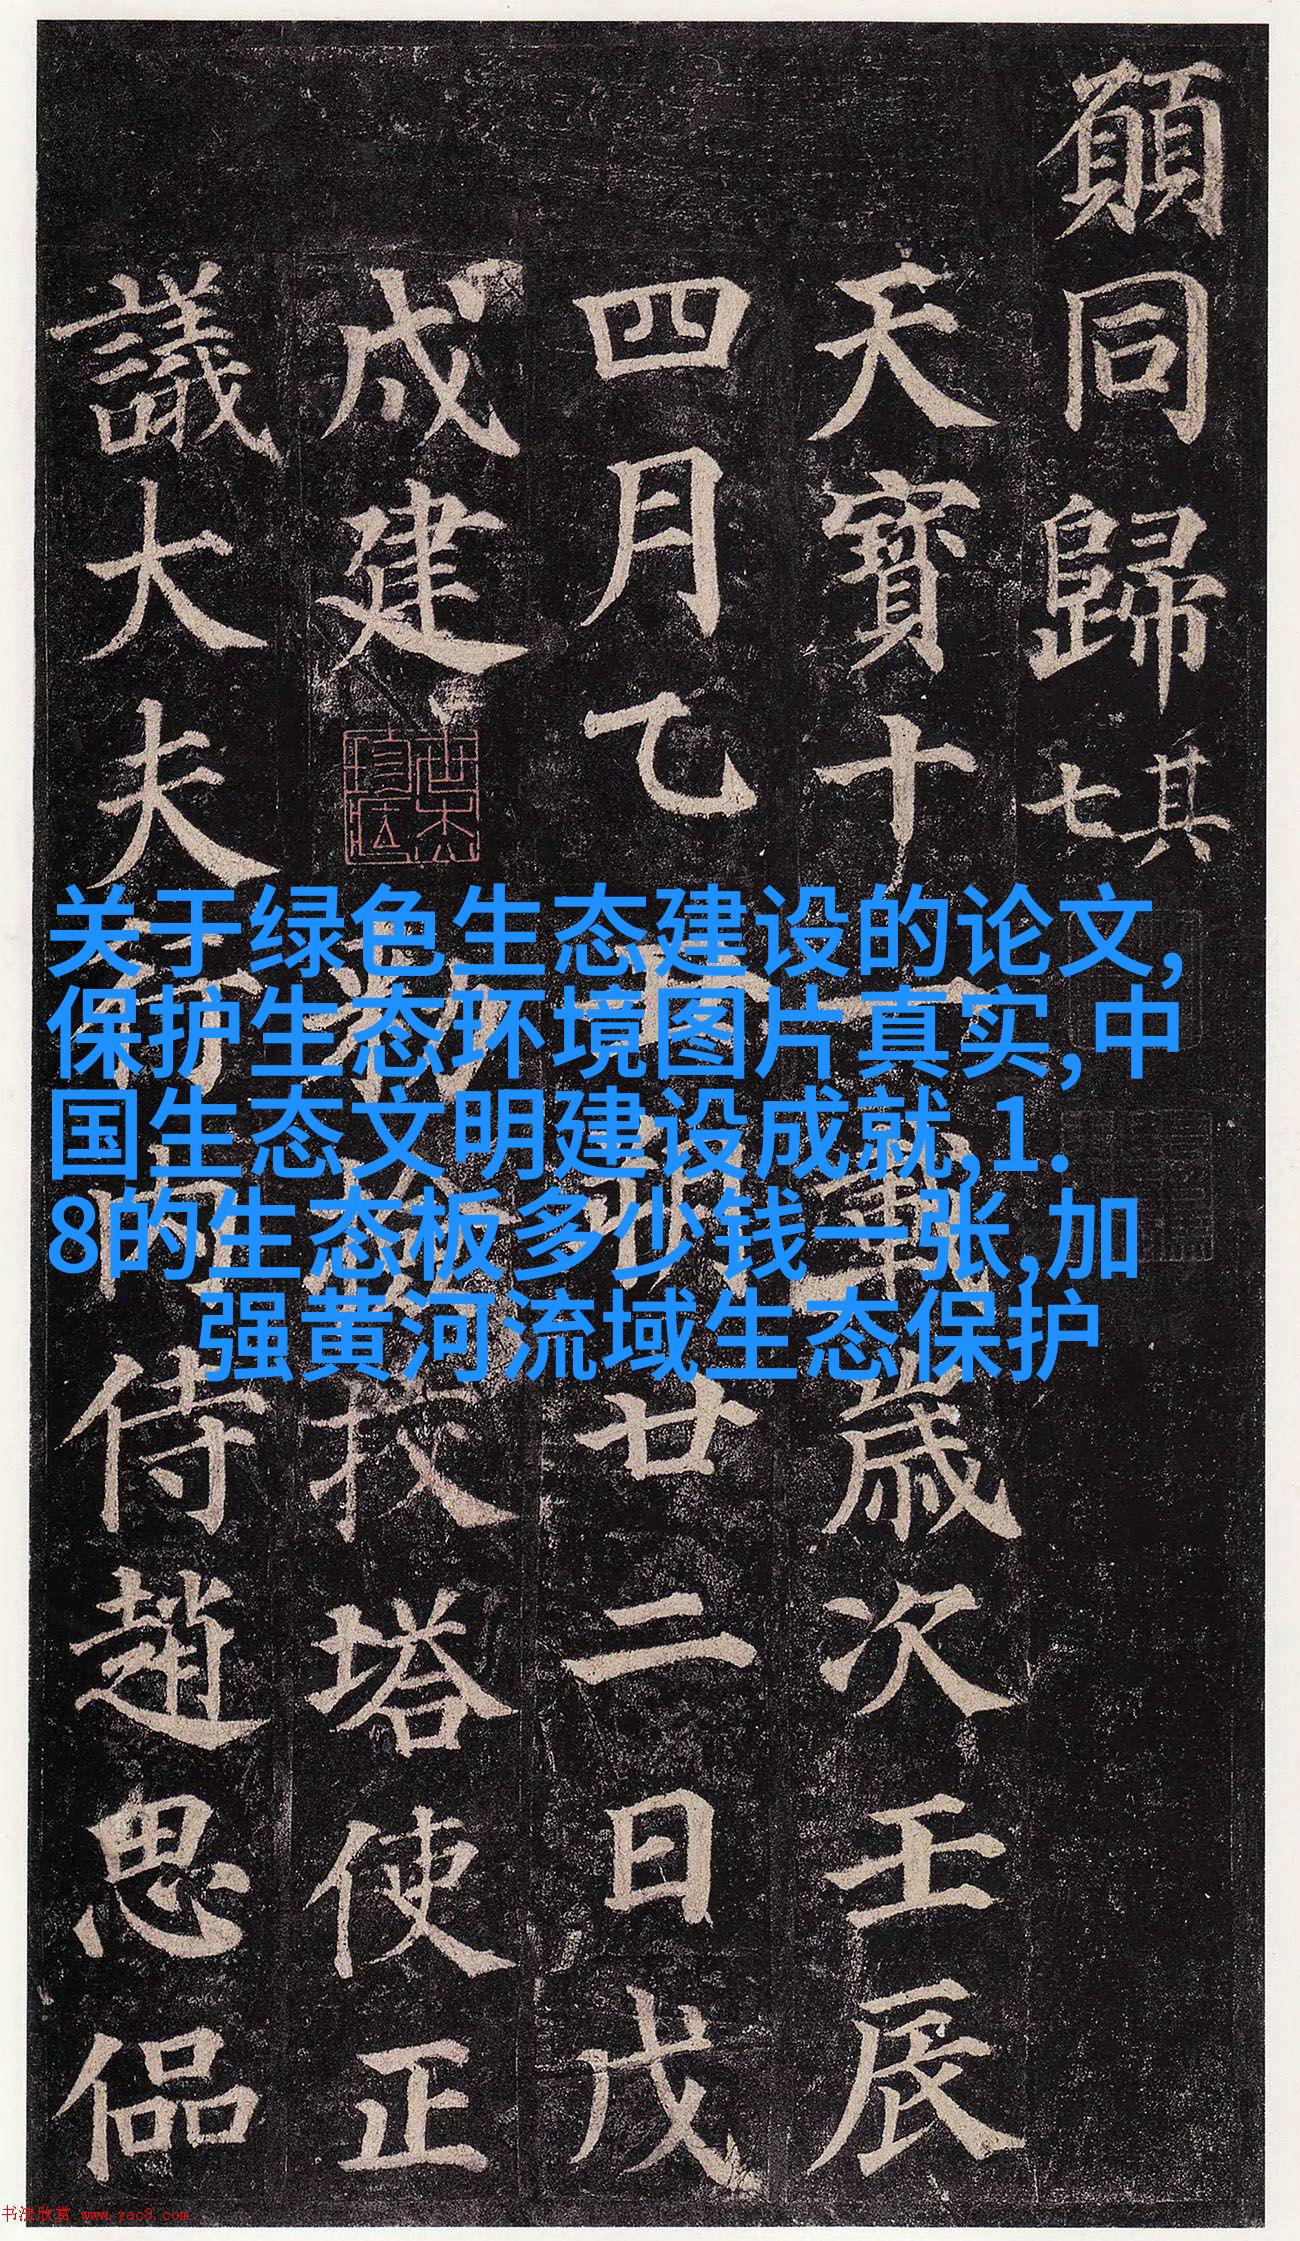 願同歸其七
天寶十一載歲次壬辰
四月乙丑朔廿二日戊
戌建勅檢挍塔使正
議大夫行内侍趙思偘
关于绿色生态建设的论文,
保护生态环境图片真实,中
国生态文明建设成就,1.
8的生态板多少钱一张,加
强黄河流域生态保护
书法欣赏 www.yac8.com